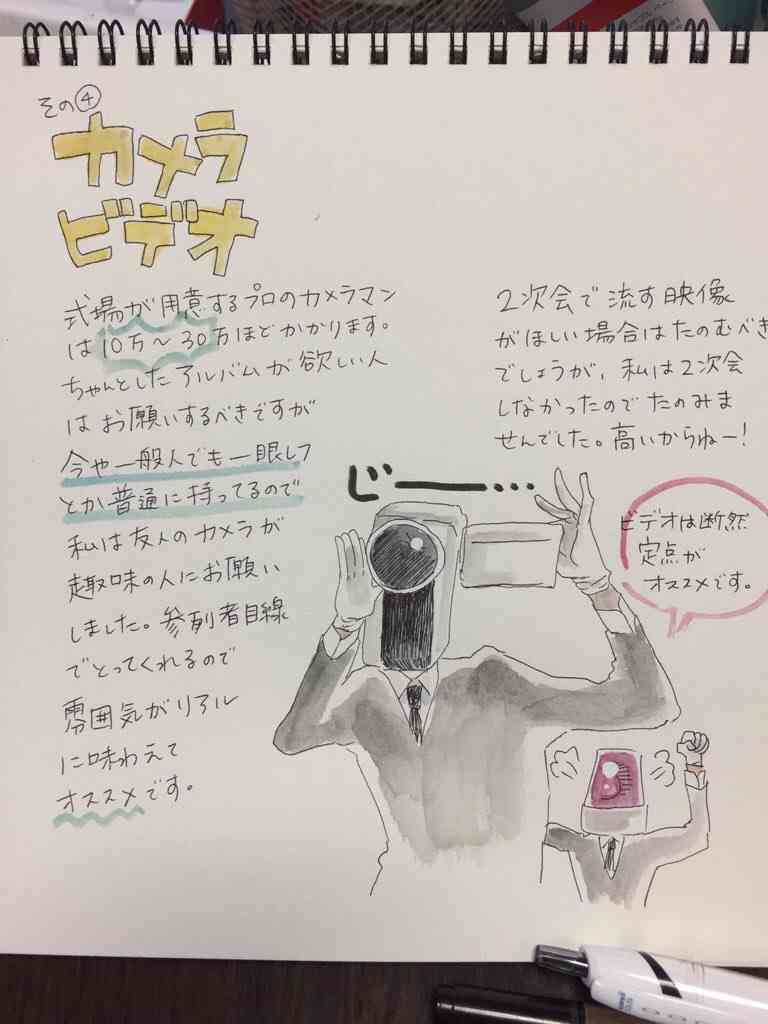 その④
カメラ
ビデオ
式場が用意するプロのカメラマン
は10万～30万ほどかかります。
ちゃんとしたアルバムが欲しい人
はお願いするべきですが
今や一般人でも一眼レフ
とか普通に持ってるので
私は友人のカメラが
趣味の人にお願い
しました。参列者目線
でとってくれるので
雰囲気がリアル
に味わえて
オススメです。
2次会で流す映像
がほしい場合はたのむべき
でしょうが、私は2次会
しなかったのでたのみま
せんでした。高いからねー！
じー…
ビデオは断然
定点が
オススメです。